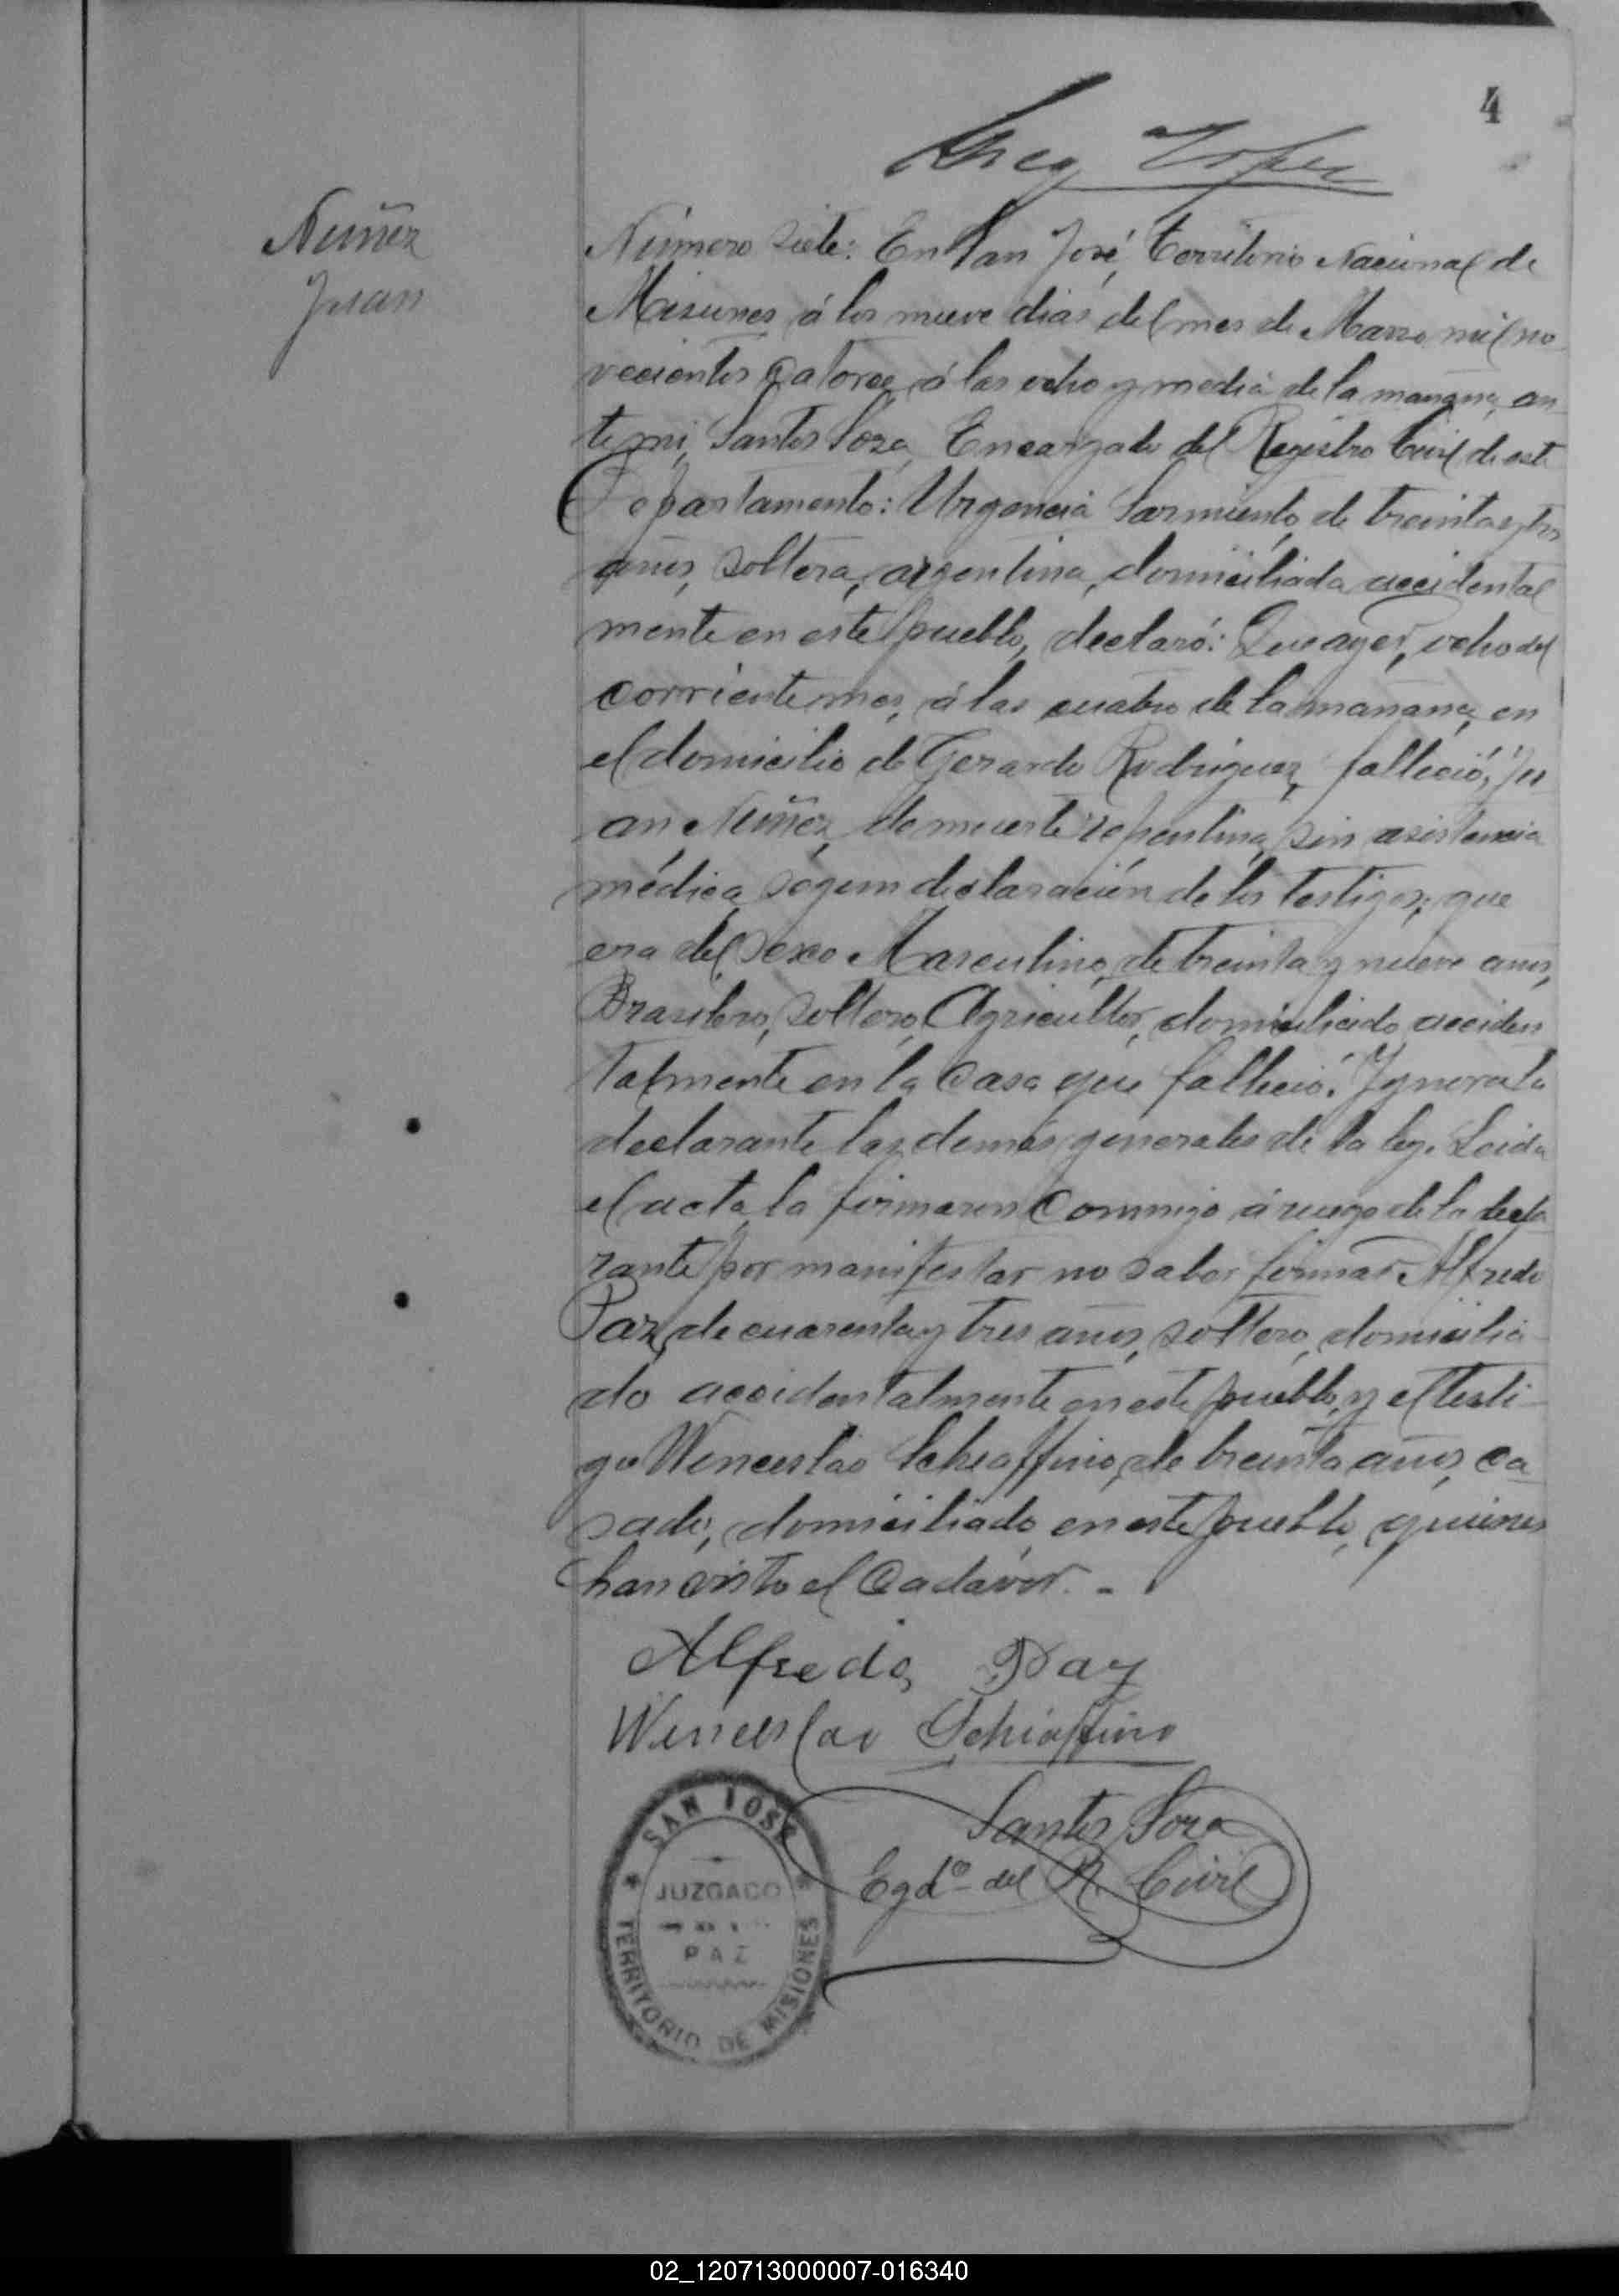 4
Nuñez
Juan
Número siete: En San José, Territorio Nacional de
Misiones á los nueve dias del mes de Marzo mil no
vecientos catorce, á las ocho y media de la mañana, an
te mi, Santos Soza, Encargado del Registro Civil de este
Departamento: Urgencia Sarmiento, de treinta y tres
años, soltera, argentina, domiciliada accidental
mente en este pueblo, declaró: Que ayer, ocho del
corriente mes, á las cuatro de la mañana, en
el domicilio de Gerardo Rodriguez, falleció, Ju
an Nuñez, de muerte repentina, sin asistencia
médica, según declaración de los testigos; que
era del sexo Masculino, de treinta y nueve años,
Brasilero, soltero, Agricultor, domiciliado acciden
talmente en la casa que falleció. Ygnora la
declarante las demás generales de la ley. Leida
el acta, la firmaron conmigo, á ruego de la decla
rante por manifestar no saber firmar Alfredo
Paz, de cuarenta y tres años, soltero, domicilia-
do accidentalmente en este pueblo, y el testi-
go Wenceslao Schiaffino, de treinta años, ca
sado, domiciliado en este pueblo, quienes
han visto el cadáver. -
Alfredo Paz
Wenceslao Schiaffino
Santos Soza
Egdº del R. Civil
SAN JOSE
JUZGADO
DE
PAZ
TERRITORIO DE MISIONES
02_120713000007-016340